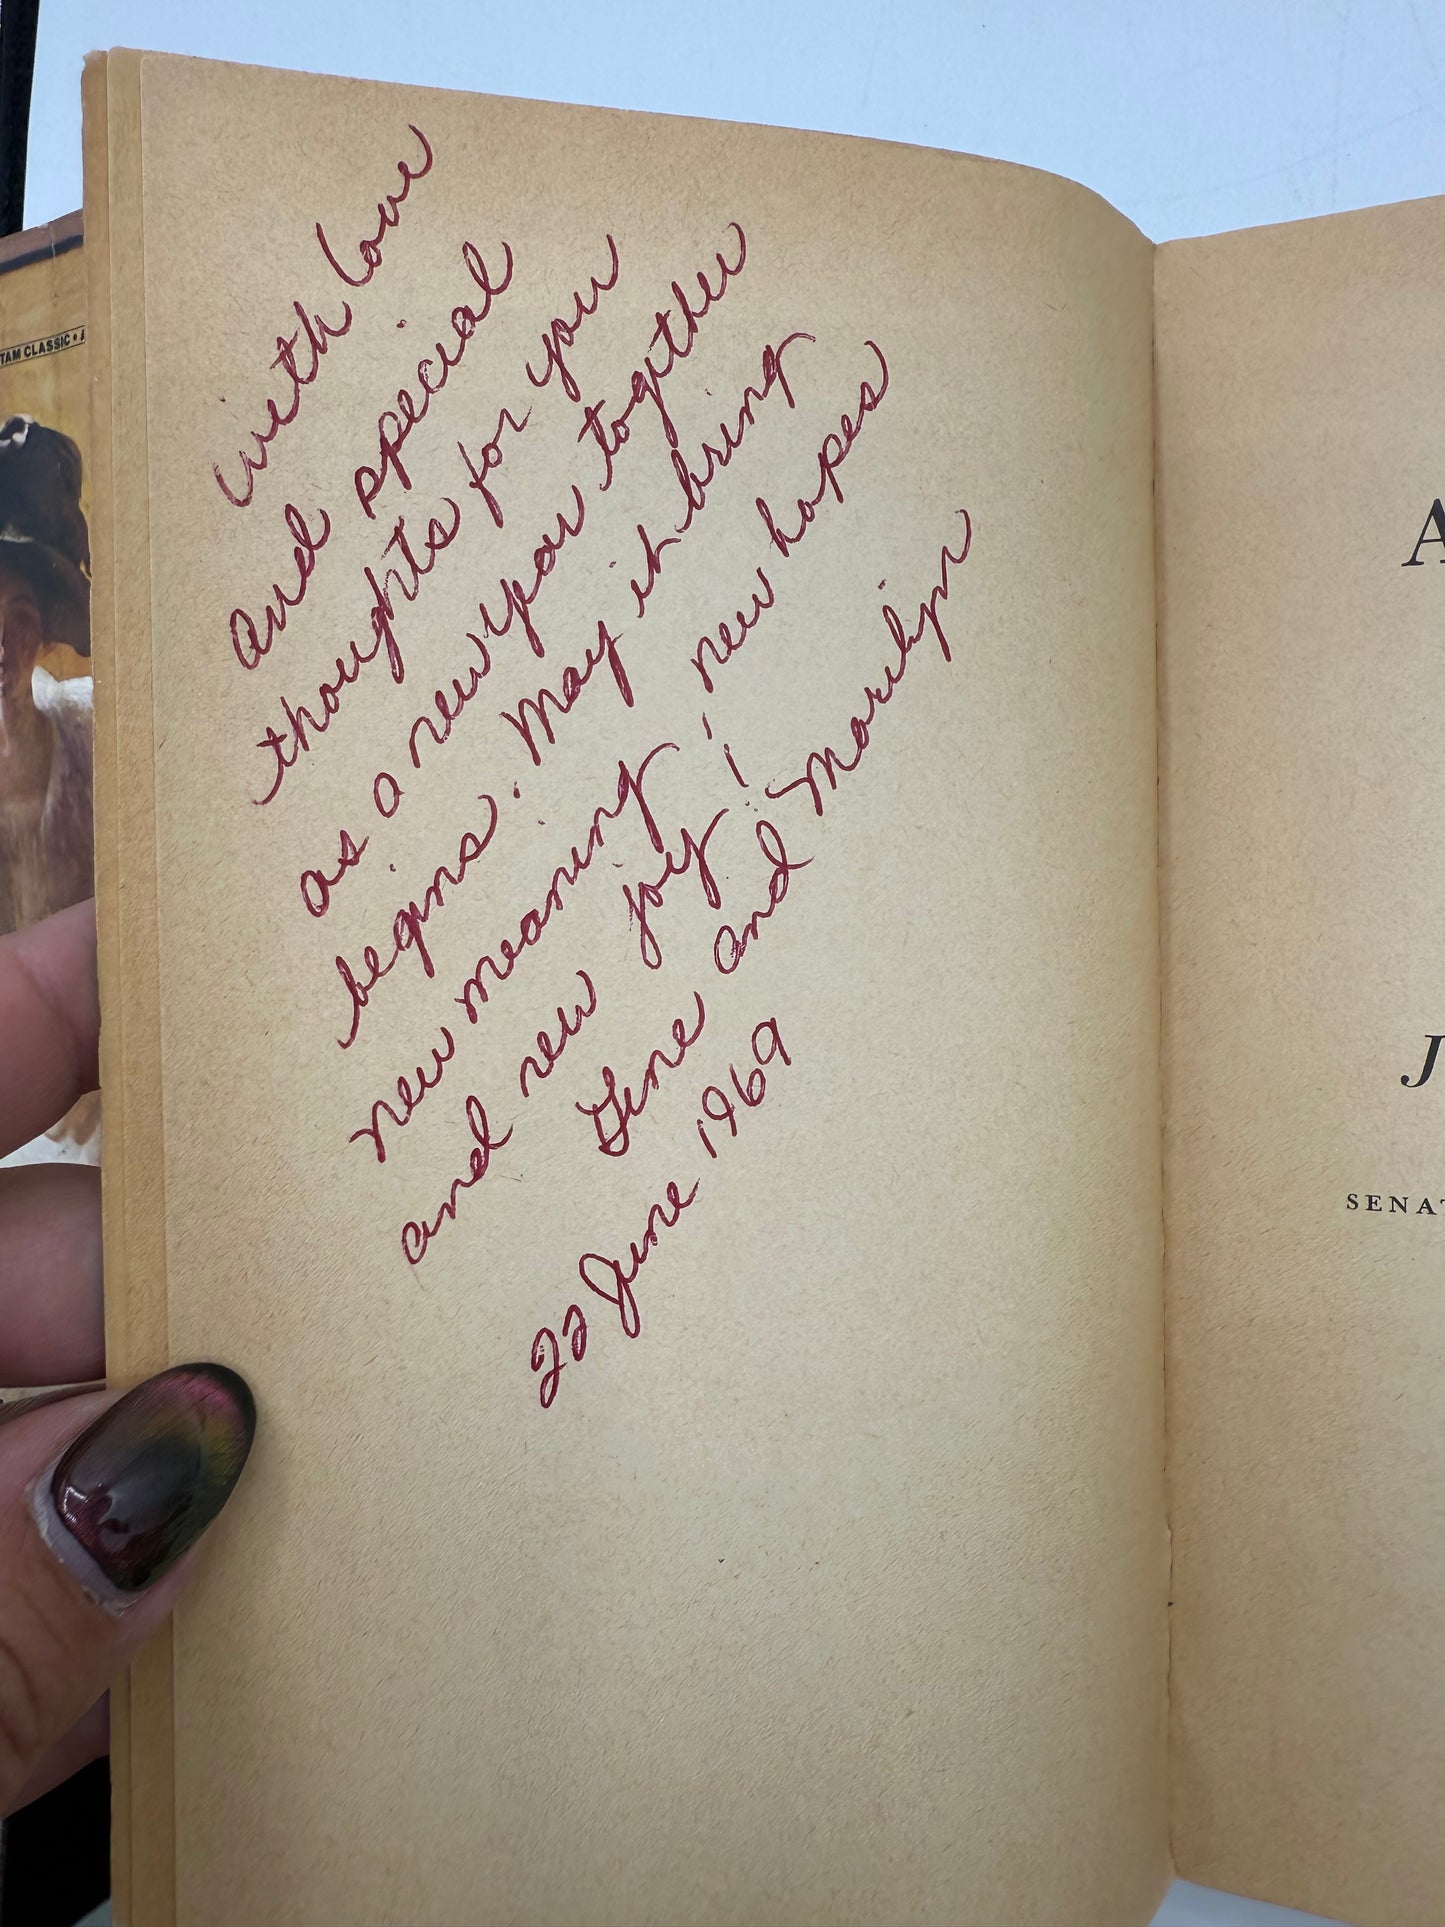 with love
and special
thoughts for you
as a new year together
begins. May it bring
new meaning, new hopes
and new joy!
Gene and Marilyn
22 June 1969
TAM CLASSIC • A
A
J
SENAT